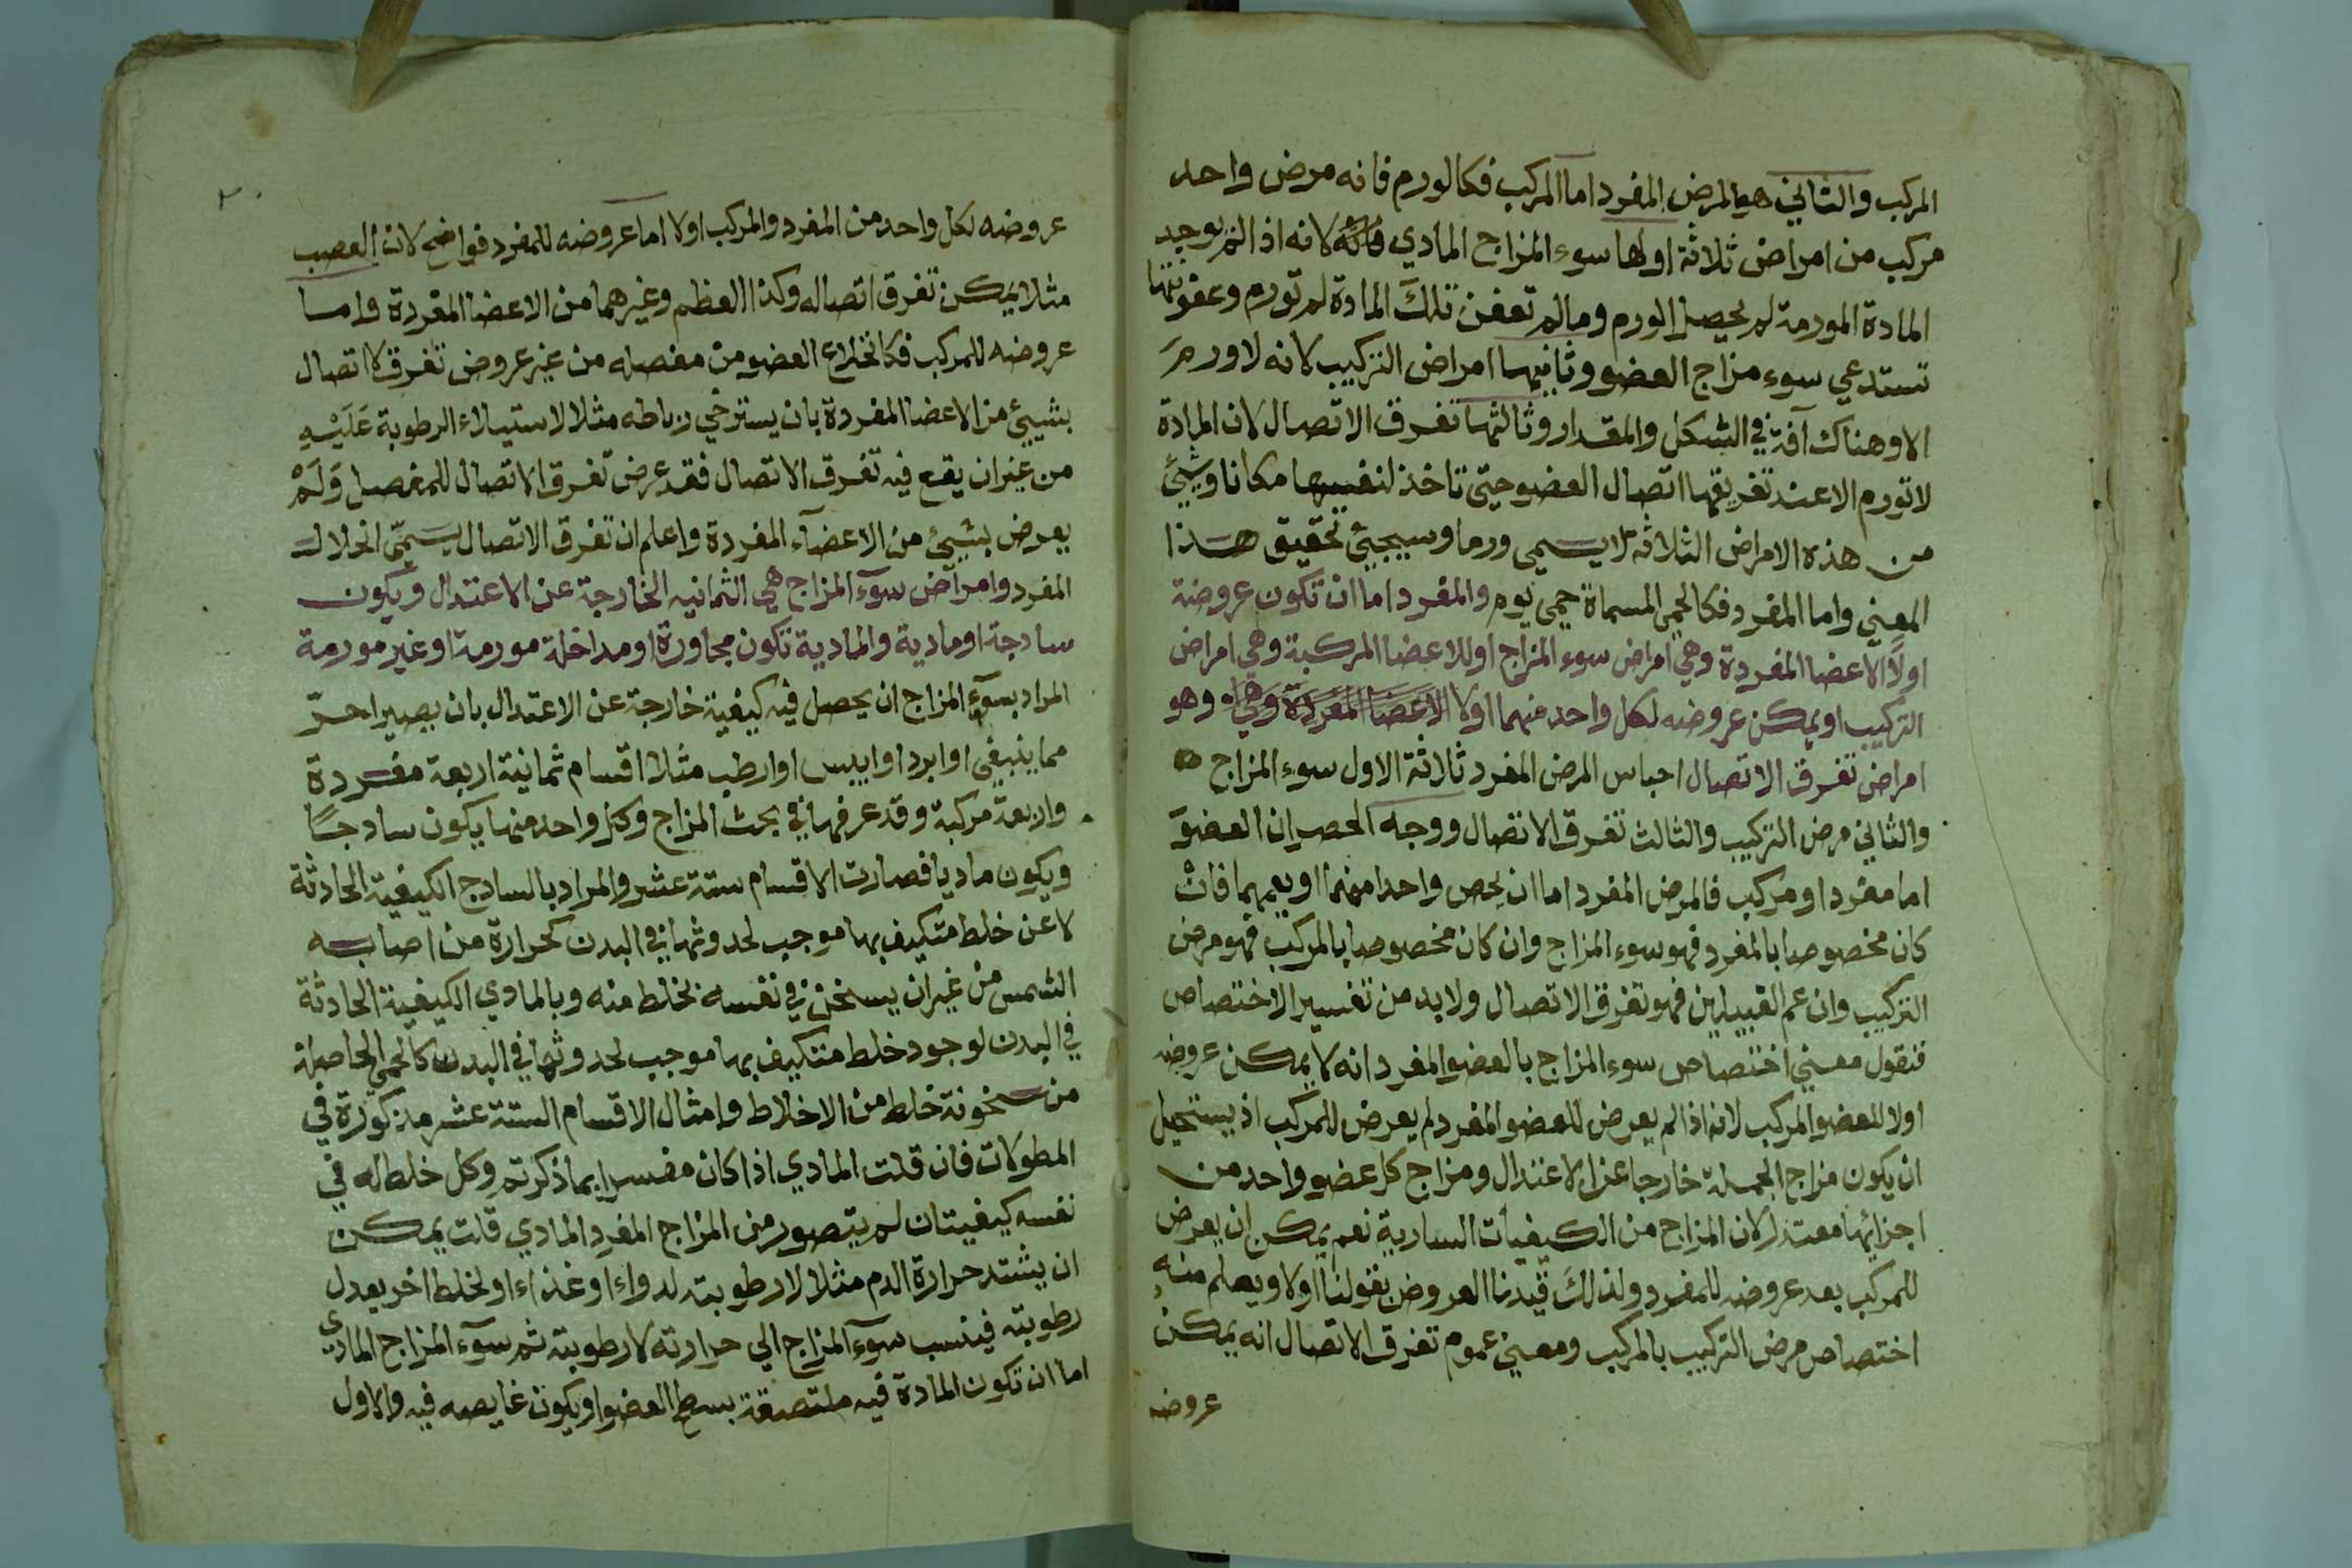 المركب والثاني هو المرض المفرد اما المركب فكالورم فانه مرض واحد
مركب من امراض ثلاثة اولها سوء المزاج المادي لانه اذا لم توجد
المادة المورمة لم يحصل الورم وما لم تعفن تلك المادة لم تورم وعفونتها
تستدعي سوء مزاج العضو وثانيها امراض التركيب لانه لا ورم
الا وهناك آفة في الشكل والمقدار وثالثها تفرق الاتصال لان المادة
لا تورم الا عند تفريقها اتصال العضو حتى تاخذ لنفسها مكانا وشيئ
من هذه الامراض الثلاثة لا يسمى ورما وسيجيئ تحقيق هذا
المعني واما المفرد فكالحمى المسماة حمى يوم والمفرد اما ان تكون عروضة
اولا الاعضا المفردة وهي امراض سوء المزاج او للاعضا المركبة وهي امراض
التركيب او يمكن عروضه لكل واحد منهما اولا الاعضا المفردة وهي وهو
امراض تفرق الاتصال اجناس المرض المفرد ثلاثة الاول سوء المزاج
والثاني مرض التركيب والثالث تفرق الاتصال ووجه الحصر ان العضو
اما مفرد او مركب فالمرض المفرد اما ان يخص واحدا منهما او يعمهما فان
كان مخصوصا بالمفرد فهو سوء المزاج وان كان مخصوصا بالمركب فهو مرض
التركيب وان عم القبيلين فهو تفرق الاتصال ولا بد من تفسير الاختصاص
فنقول معني اختصاص سوء المزاج بالعضو المفرد انه لا يمكن عروضه
اولا للعضو المركب لانه اذا لم يعرض للعضو المفرد لم يعرض للمركب اذ يستحيل
ان يكون مزاج الجملة خارجا عن الاعتدال ومزاج كل عضو واحد من
اجزائها معتدلا لان المزاج من الكيفيات السارية نعم يمكن ان يعرض
للمركب بعد عروضه للمفرد ولذلك قيدنا العروض بقولنا اولا ويعلم منه
اختصاص مرض التركيب بالمركب ومعني عموم تفرق الاتصال انه يمكن
عروضه
٢٠
عروضه لكل واحد من المفرد والمركب اولا اما عروضه للمفرد فواضح لان العصب
مثلا يمكن تفرق اتصاله وكذا العظم وغيرهما من الاعضا المفردة واما
عروضه للمركب فكانخلاع العضو من مفصله من غير عروض تفرق الاتصال
بشيئ من الاعضا المفردة بان يسترخي رباطه مثلا لاستيلاء الرطوبة عليه
من غير ان يقع فيه تفرق الاتصال فقد عرض تفرق الاتصال للمفصل ولم
يعرض بشيئ من الاعضآء المفردة واعلم ان تفرق الاتصال يسمى انحلال
المفرد وامراض سوء المزاج هي الثمانيه الخارجة عن الاعتدال ويكون
سادجة او مادية والمادية تكون مجاورة او مداخلة مورمة او غير مورمة
المراد بسوء المزاج ان يحصل فيه كيفية خارجة عن الاعتدال بان يصير احر
مما ينبغي او ابرد او ايبس او ارطب مثلا اقسام ثمانية اربعة مفردة
واربعة مركبة وقد عرفها في بحث المزاج وكل واحد منها يكون سادجا
ويكون ماديا فصارت الاقسام ستة عشر والمراد بالسادج الكيفية الحادثة
لا عن خلط متكيف بها موجب لحدوثها في البدن كحرارة من اصابه
الشمس من غير ان يسخن في نفسه بخلط منه وبالمادي الكيفية الحادثة
في البدن لوجود خلط متكيف بها موجب لحدوثها في البدن كالحمى الحاصلة
من سخونة خلط من الاخلاط وامثال الاقسام الستة عشر مذكورة في
المطولات فان قلت المادي اذا كان مفسرا بما ذكرتم وكل خلط له في
نفسه كيفيتان لم يتصور من المزاج المفرد المادي قلت يمكن
ان يشتد حرارة الدم مثلا لا رطوبته لدواء او غذاء او لخلط اخر يعدل
رطوبته فينسب سوء المزاج الي حرارته لا رطوبته ثم سوء المزاج المادي
اما ان تكون المادة فيه ملتصقة بسطح العضو او يكون غايصه فيه والاول